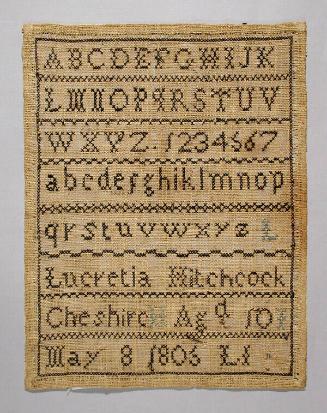 ABCDEFGHIJK
LMNOPQRSTUV
WXYZ. 1234567
abcdefghiklmnop
qrstuvwxyz L
Lucretia Hitchcock
Cheshire H Aged 10
May 8 1806 LH